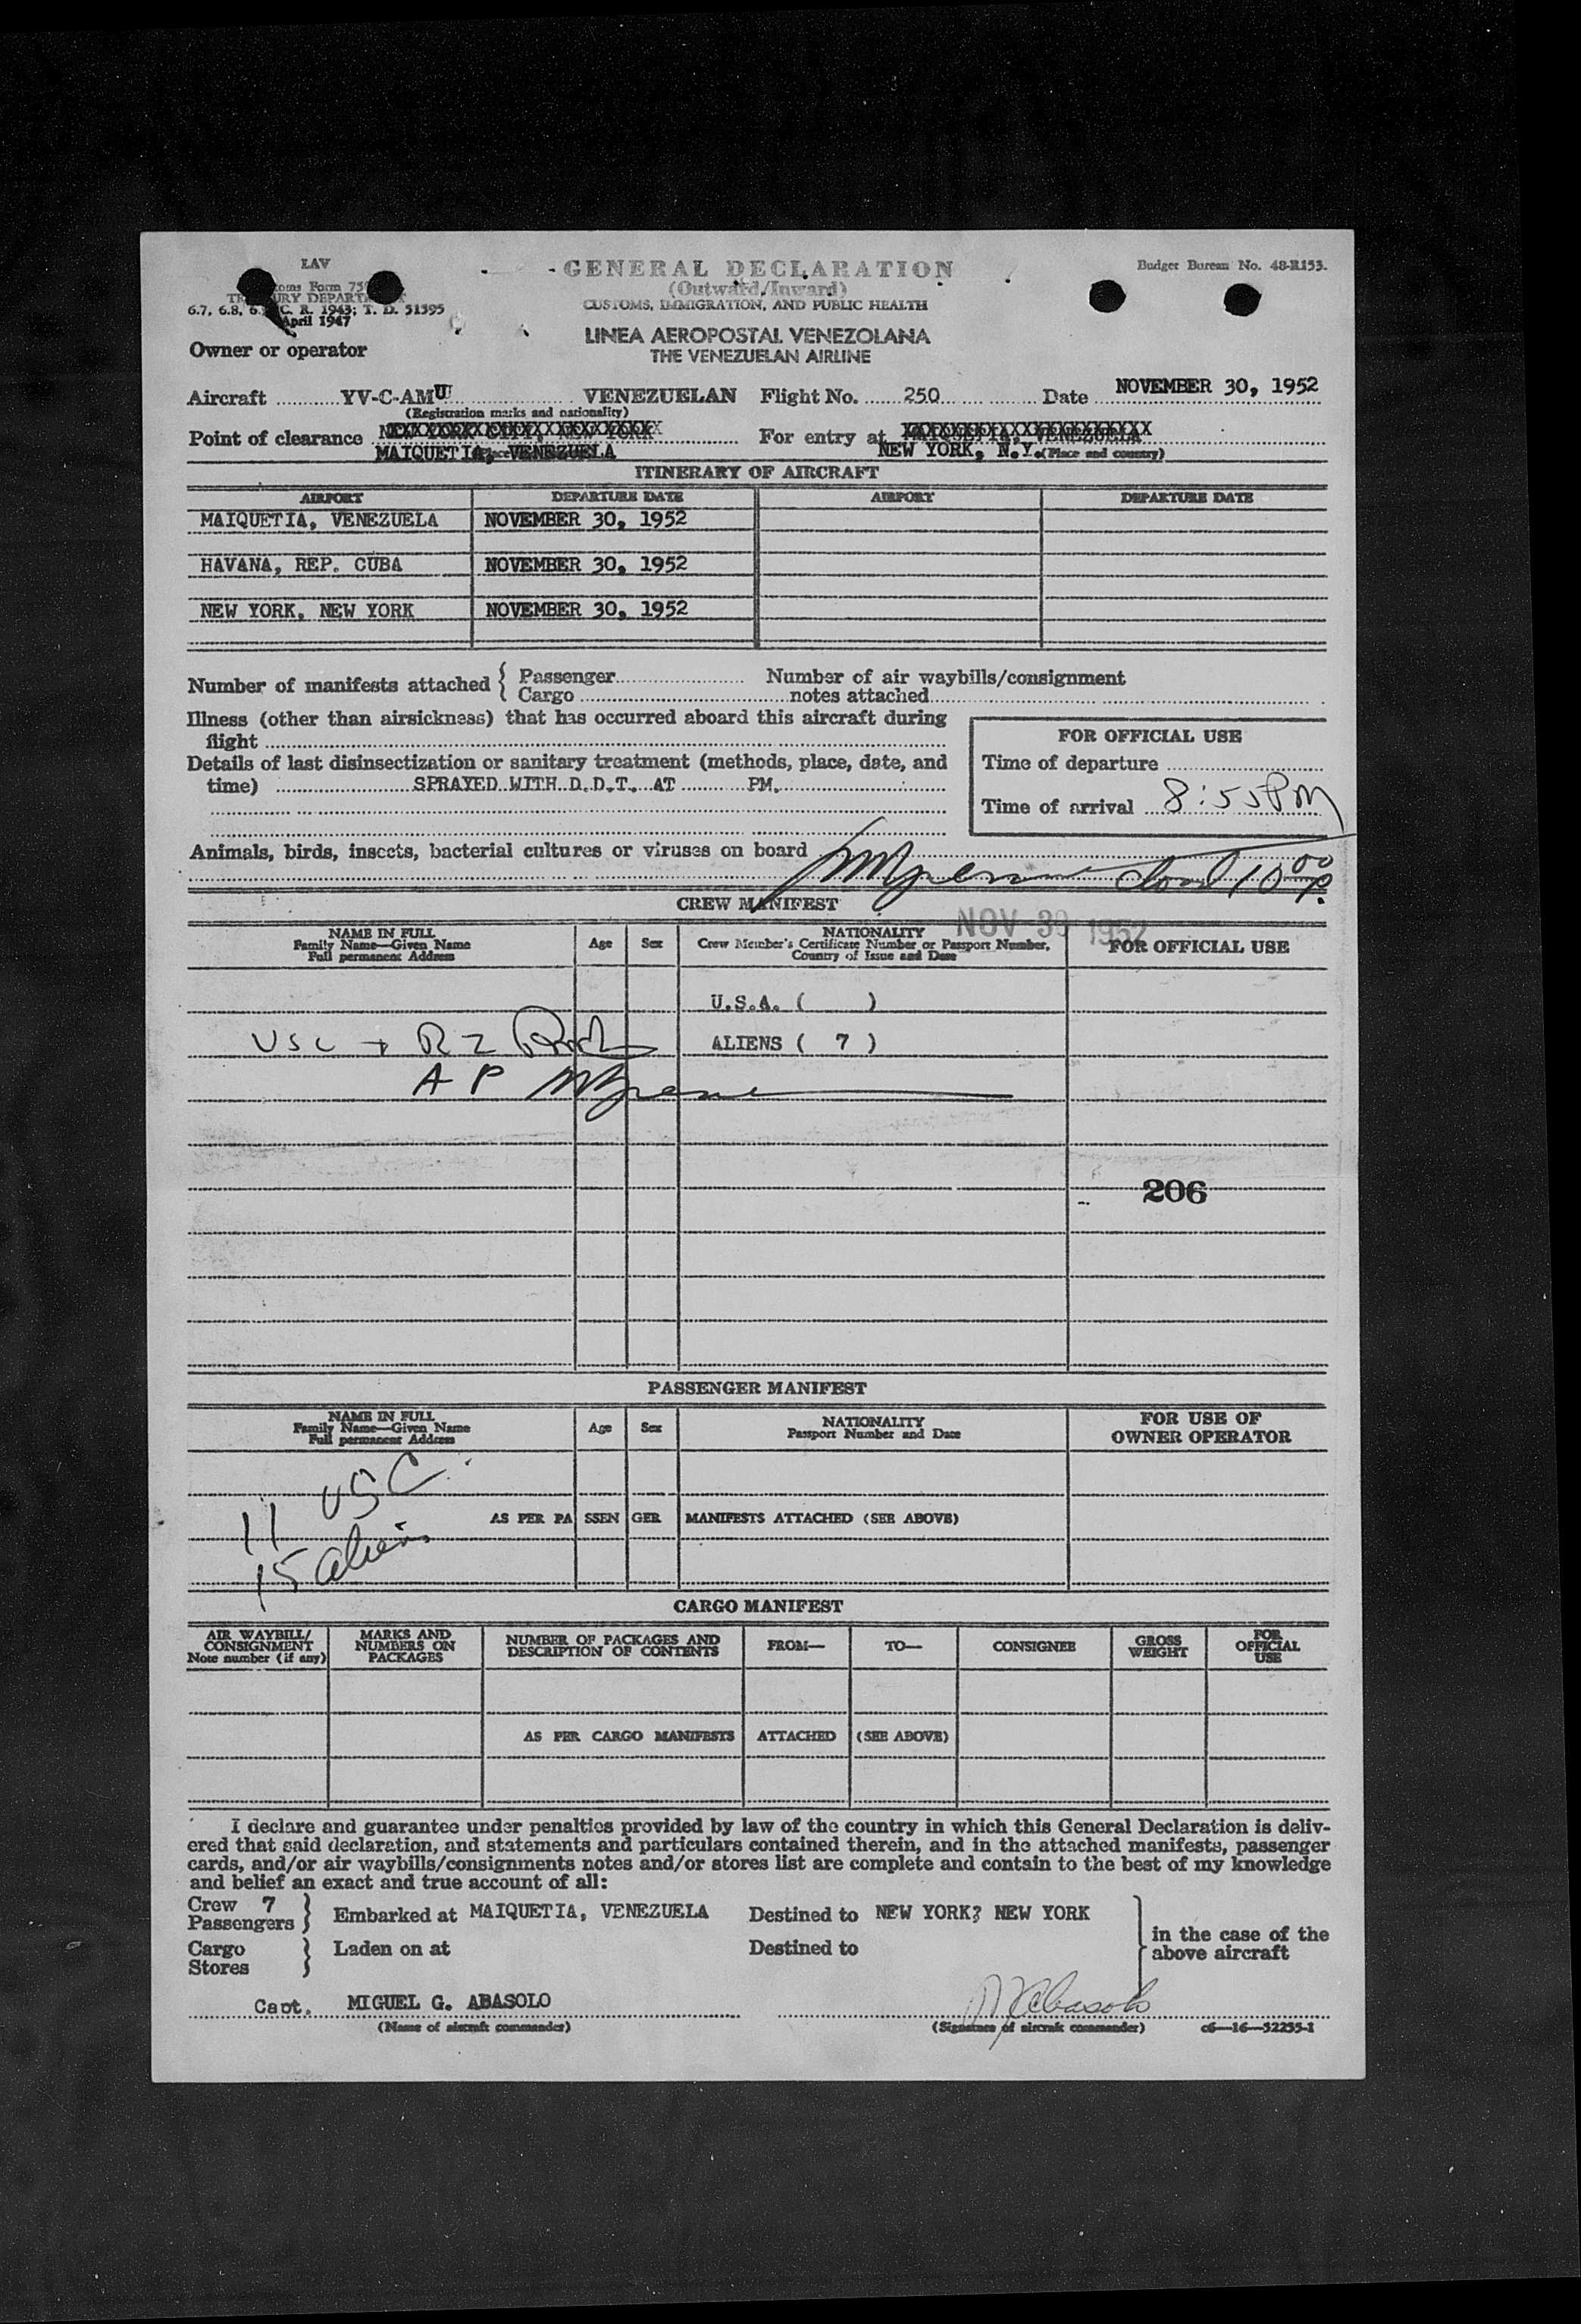 LAV
GENERAL DECLARATION
Budget Bureau No. 48-R153.
(Outward/Inward)
CUSTOMS, IMMIGRATION, AND PUBLIC HEALTH
6.7, 6.8, C. R. 1943; T. D. 51595
April 1947
LINEA AEROPOSTAL VENEZOLANA
THE VENEZUELAN AIRLINE
Owner or operator
Aircraft YV-C-AMU VENEZUELAN Flight No. 250 Date NOVEMBER 30, 1952
(Registration marks and nationality)
Point of clearance For entry at
MAIQUETIA, VENEZUELA NEW YORK, N.Y. (Place and country)
ITINERARY OF AIRCRAFT
AIRPORT DEPARTURE DATE AIRPORT DEPARTURE DATE
MAIQUETIA, VENEZUELA NOVEMBER 30, 1952
HAVANA, REP. CUBA NOVEMBER 30, 1952
NEW YORK, NEW YORK NOVEMBER 30, 1952
Number of manifests attached { Passenger Number of air waybills/consignment
Cargo notes attached
Illness (other than airsickness) that has occurred aboard this aircraft during
flight
FOR OFFICIAL USE
Details of last disinsectization or sanitary treatment (methods, place, date, and
time) SPRAYED WITH D.D.T. AT PM.
Time of departure
Time of arrival 8:55 PM
Animals, birds, insects, bacterial cultures or viruses on board
10 00 P.
CREW MANIFEST
NOV 30 1952
NAME IN FULL
Family Name—Given Name
Full permanent Address
Age Sex
NATIONALITY
Crew Member's Certificate Number or Passport Number,
Country of Issue and Date
FOR OFFICIAL USE
U.S.A. ( )
USC + RZ
ALIENS ( 7 )
A P
206
PASSENGER MANIFEST
NAME IN FULL
Family Name—Given Name
Full permanent Address
Age Sex
NATIONALITY
Passport Number and Date
FOR USE OF
OWNER OPERATOR
11 USC
AS PER PASSENGER MANIFESTS ATTACHED (SEE ABOVE)
15 aliens
CARGO MANIFEST
AIR WAYBILL/
CONSIGNMENT
Note number (if any)
MARKS AND
NUMBERS ON
PACKAGES
NUMBER OF PACKAGES AND
DESCRIPTION OF CONTENTS
FROM— TO— CONSIGNEE
GROSS
WEIGHT
FOR
OFFICIAL
USE
AS PER CARGO MANIFESTS ATTACHED (SEE ABOVE)
I declare and guarantee under penalties provided by law of the country in which this General Declaration is deliv-
ered that said declaration, and statements and particulars contained therein, and in the attached manifests, passenger
cards, and/or air waybills/consignments notes and/or stores list are complete and contain to the best of my knowledge
and belief an exact and true account of all:
Crew 7
Passengers } Embarked at MAIQUETIA, VENEZUELA Destined to NEW YORK? NEW YORK
in the case of the
above aircraft
Cargo
Stores } Laden on at Destined to
Capt. MIGUEL G. ABASOLO
(Name of aircraft commander) (Signature of aircraft commander) c6—16—52255-1